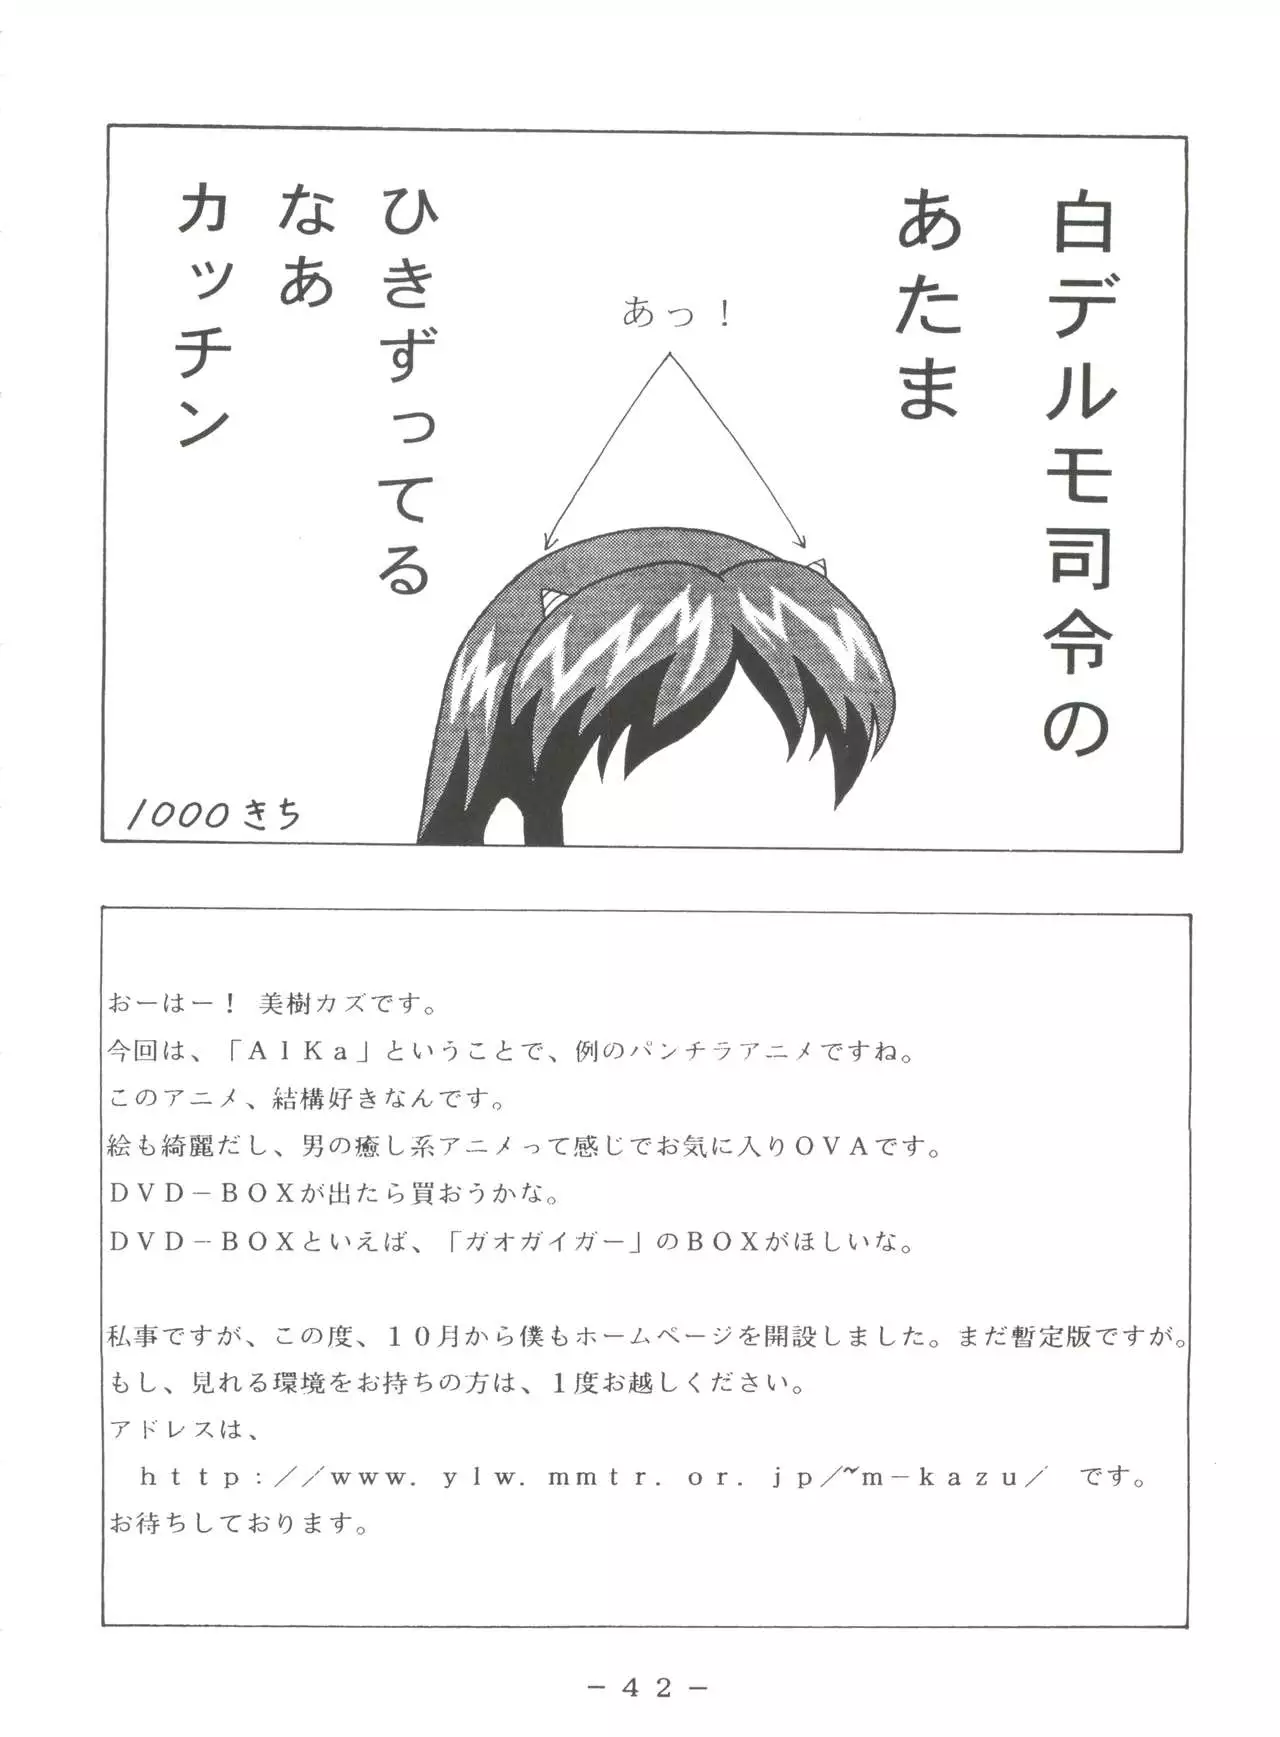 白デルモ司令の
あたま
あっ！
ひきずってる
なあ
カッチン
1000きち
おーはー！ 美樹カズです。
今回は、「ＡＩＫａ」ということで、例のパンチラアニメですね。
このアニメ、結構好きなんです。
絵も綺麗だし、男の癒し系アニメって感じでお気に入りＯＶＡです。
ＤＶＤ－ＢＯＸが出たら買おうかな。
ＤＶＤ－ＢＯＸといえば、「ガオガイガー」のＢＯＸがほしいな。
私事ですが、この度、１０月から僕もホームページを開設しました。まだ暫定版ですが。
もし、見れる環境をお持ちの方は、１度お越しください。
アドレスは、
ｈｔｔｐ：／／ｗｗｗ．ｙｌｗ．ｍｍｔｒ．ｏｒ．ｊｐ／~ｍ－ｋａｚｕ／　です。
お待ちしております。
－４２－